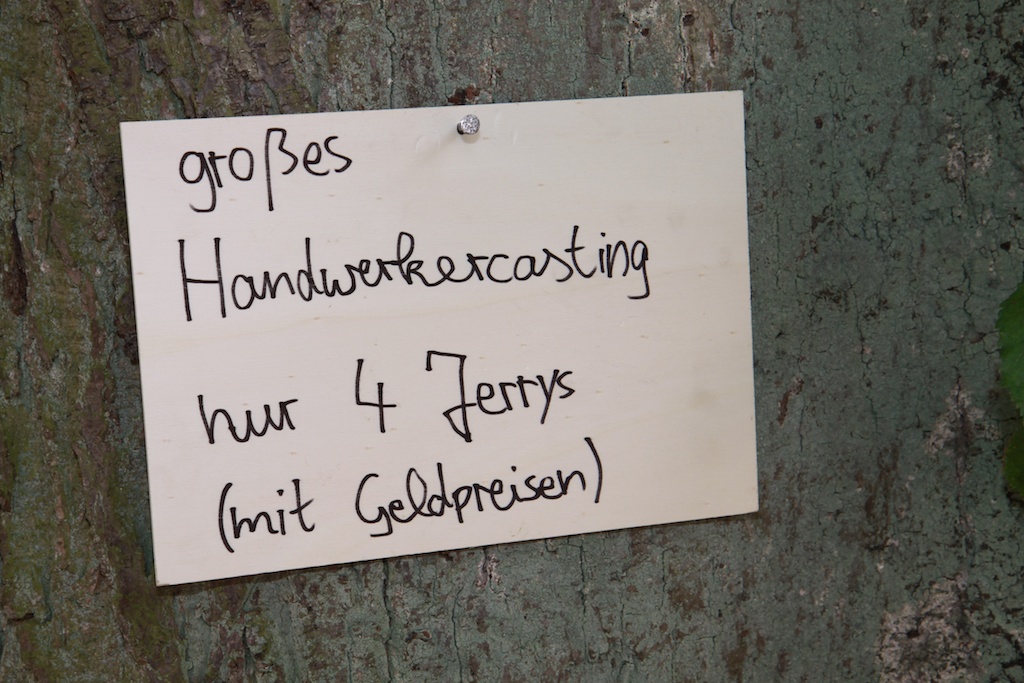 großes
Handwerkercasting
nur 4 Jerrys
(mit Geldpreisen)